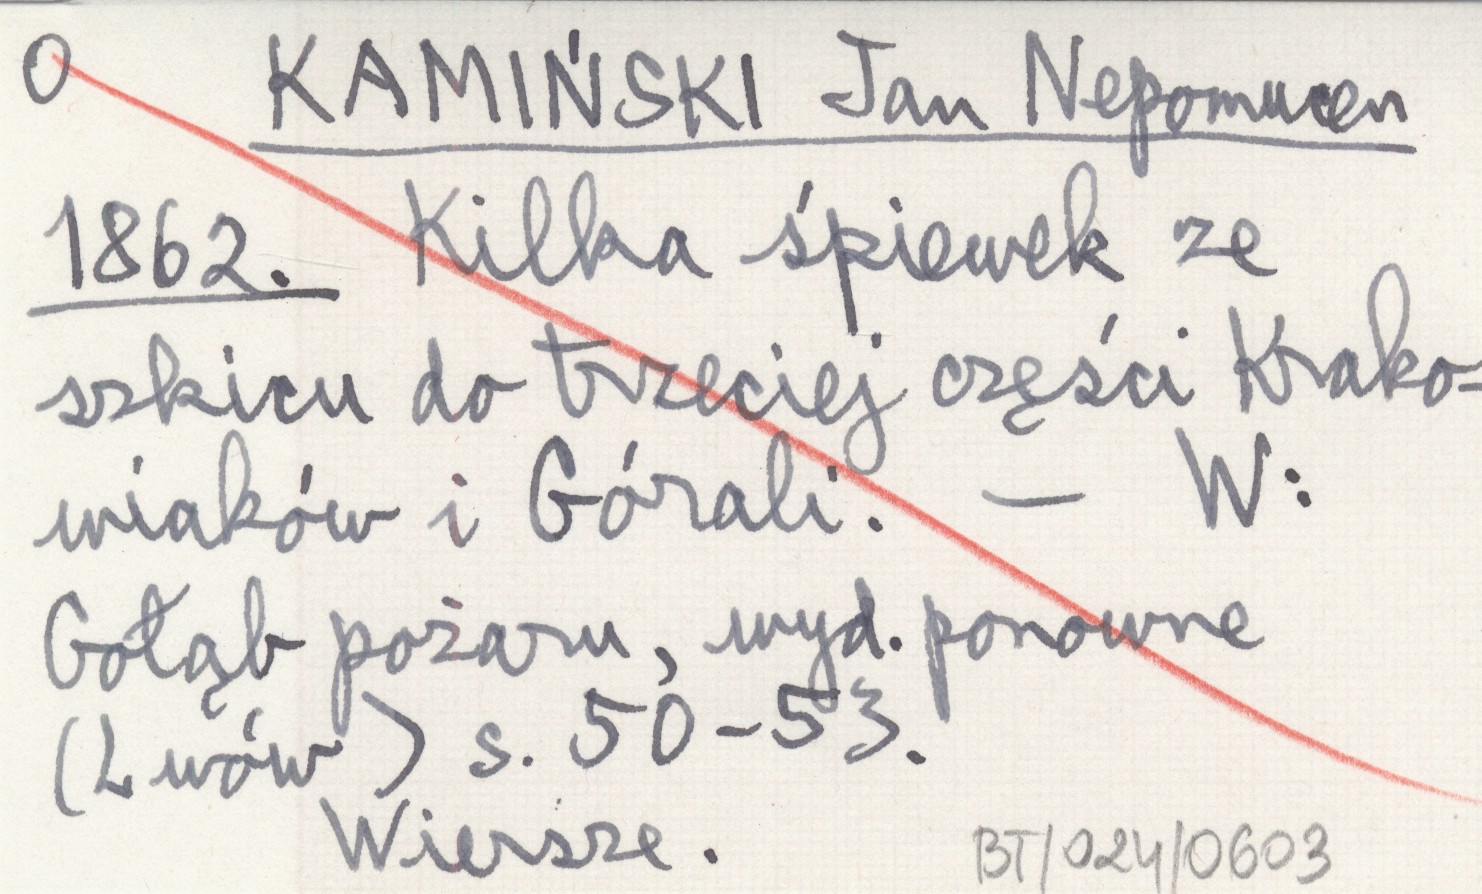 O KAMIŃSKI Jan Nepomucen
1862. Kilka śpiewek ze
szkicu do trzeciej części Krako-
wiaków i Górali. — W:
Gołąb pożaru, wyd. ponowne
(Lwów) s. 50-53.
Wiersze.
BT/024/0603